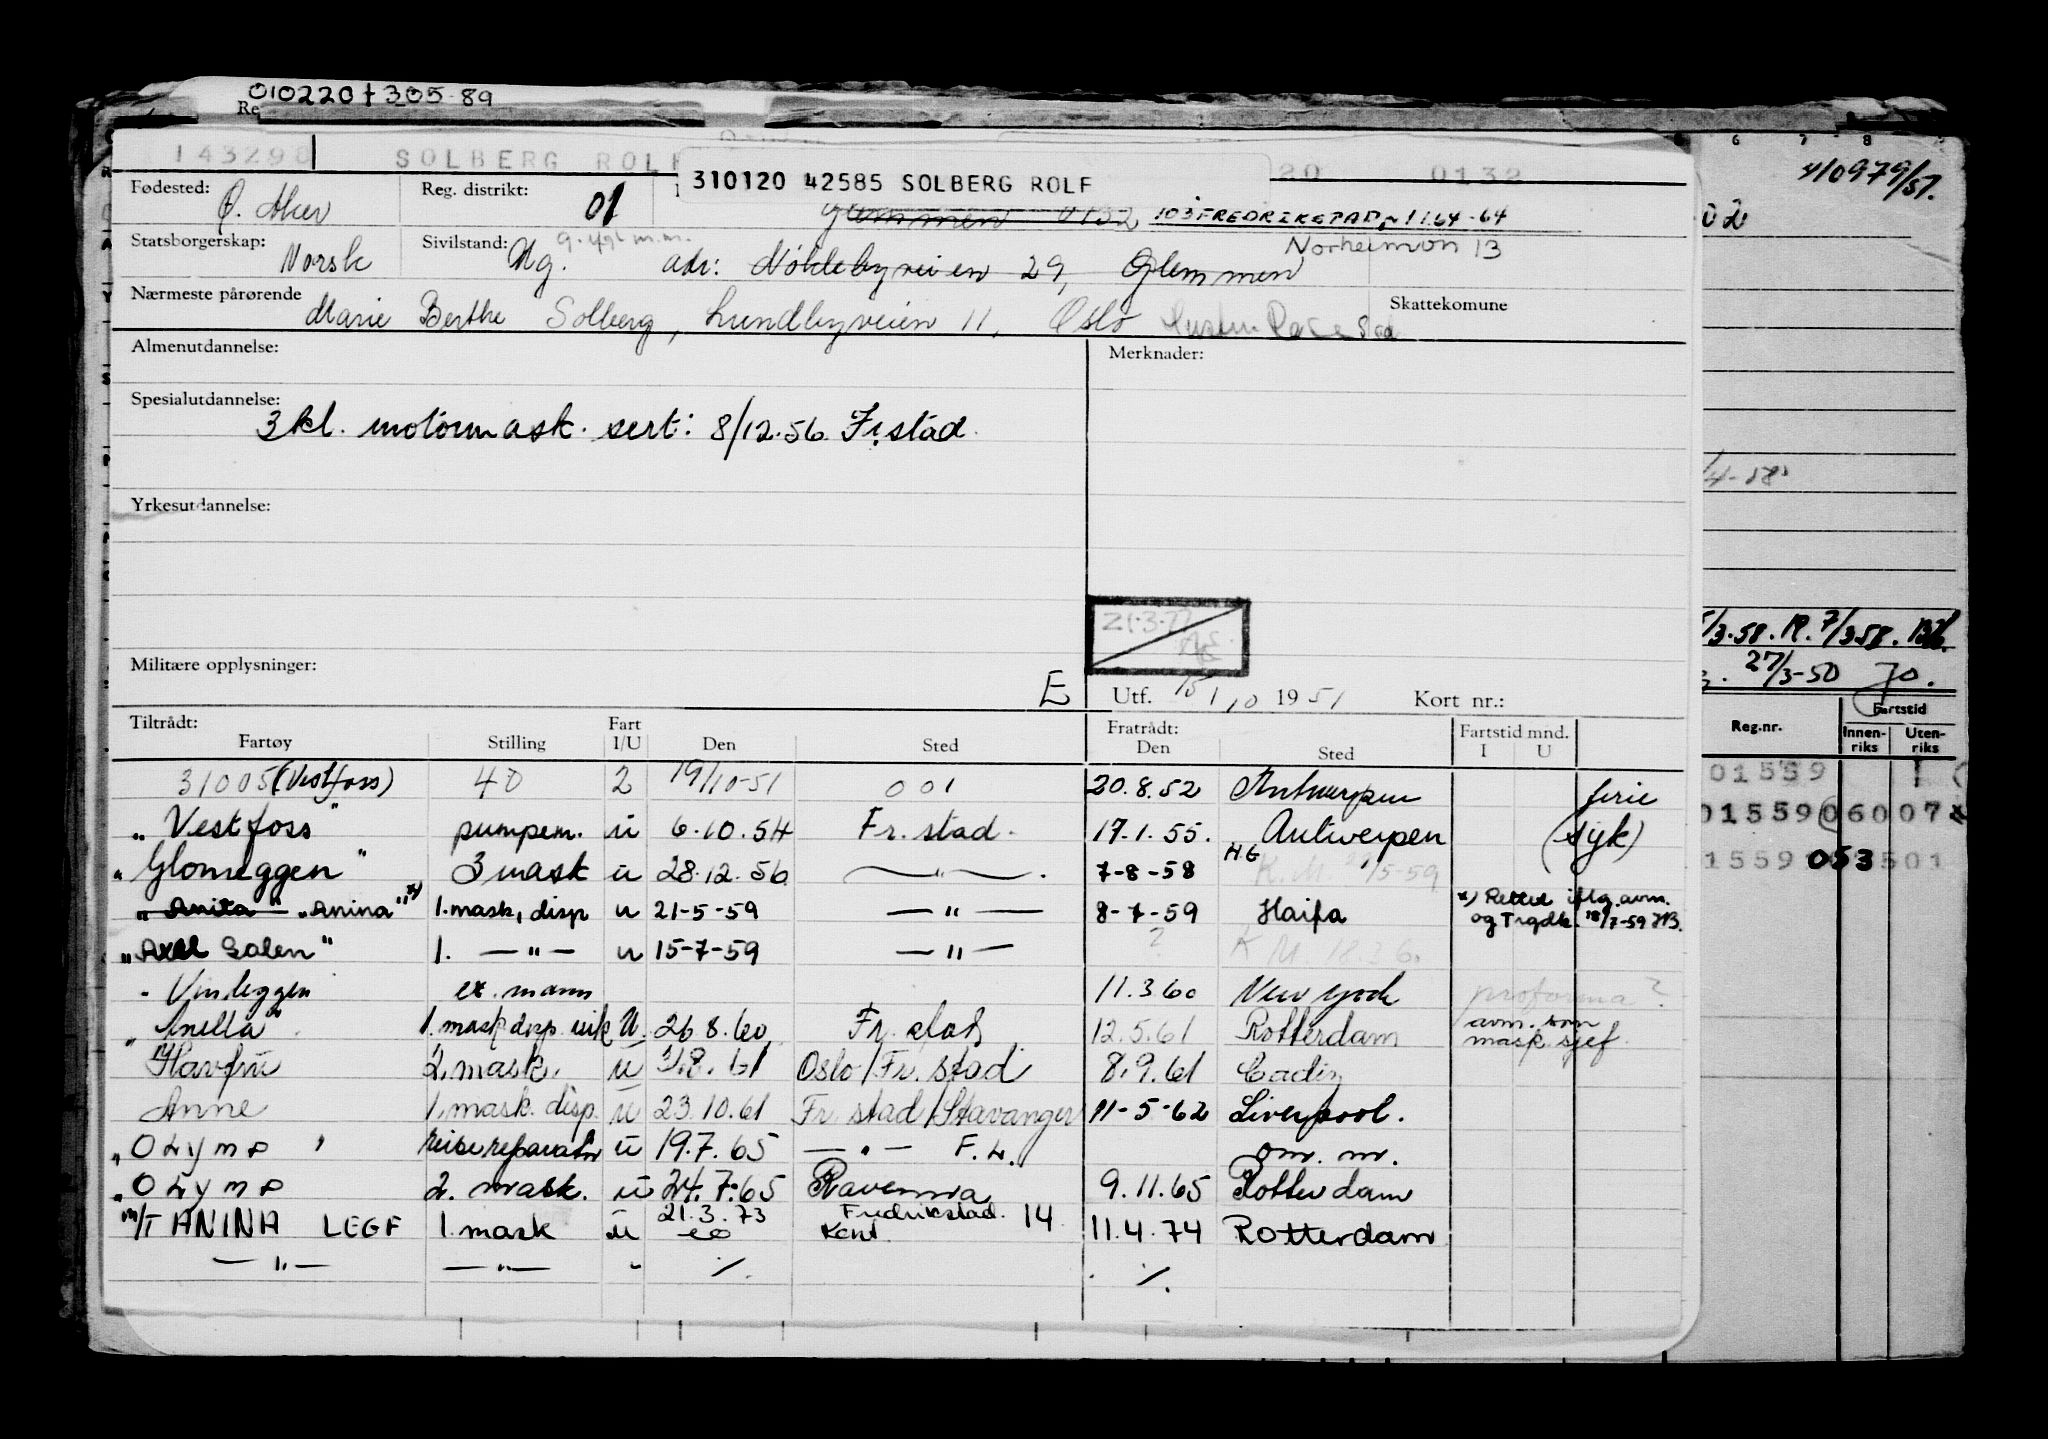 010220 + 305-89
Re
143290 SOLBERG ROLF 20 0132
310120 42585 SOLBERG ROLF
6 7 8
410979/57.
Fødested: Ø. Aker Reg. distrikt: 01 Glemmen 0132 103 FREDRIKSTAD 1.1.64-64
Statsborgerskap: Norsk Sivilstand: Ug. adr: Nöklebyveien 29, Glemmen Norheimvn 13
Nærmeste pårørende Marie Berthe Solberg, Lundbyveien 11, Oslo Skattekomune
Almenutdannelse: Merknader:
Spesialutdannelse: 3 kl. motormask. sert: 8/12.56 Fr.stad
/4-58
Yrkesutdannelse:
21.3.77
/3.58. R. 7/3.58.
27/3-50 70.
Militære opplysninger: E Utf. 15/10 1951 Kort nr.:
Tiltrådt: Fratrådt:
Fartøy Stilling Fart I/U Den Sted Den Sted Fartstid mnd. I U
Reg.nr. Fartstid Innen-riks Uten-riks
31005 (Vestfoss) 40 2 19/10-51 001 20.8.52 Antwerpen ferie
01559 1
"Vestfoss" pumpem. u 6.10.54 Fr.stad. 17.1.55. Antwerpen (syk)
01559 06007
"Glomeggen" 3 mask u 28.12.56 — " — 7-8-58 HG K.M. 2/5-59
1559 053 501
"Anita" "Anina" x) 1. mask, disp u 21-5-59 — " — 8-7-59 Haifa x) Rettet iflg. avm. og Trgdk. 18/7-59
"Axel Galen" 1. — " — u 15-7-59 — " — ? K.M. 18.3.60
"Vindeggen ex. mann 11.3.60 New York proforma?
"Anella" 1. mask disp. vik U. 26.8.60 Fr. stad 12.5.61 Rotterdam avm. som mask. sjef
Havfru 2. mask. u 3.8.61 Oslo/Fr. stad 8.9.61 Cadiz
Anne 1. mask. disp. u 23.10.61 Fr. stad/Stavanger 11-5-62 Liverpool.
"Olymp" reisereparatør u 19.7.65 — " — F.L. om. m.
"Olymp 2. mask. u 24.7.65 Ravenna 9.11.65 Rotterdam
M/T ANINA LEGF 1. mask u 21.3.73 Fredrikstad Kont. 14 11.4.74 Rotterdam
— " — — " — " ·/. ·/.